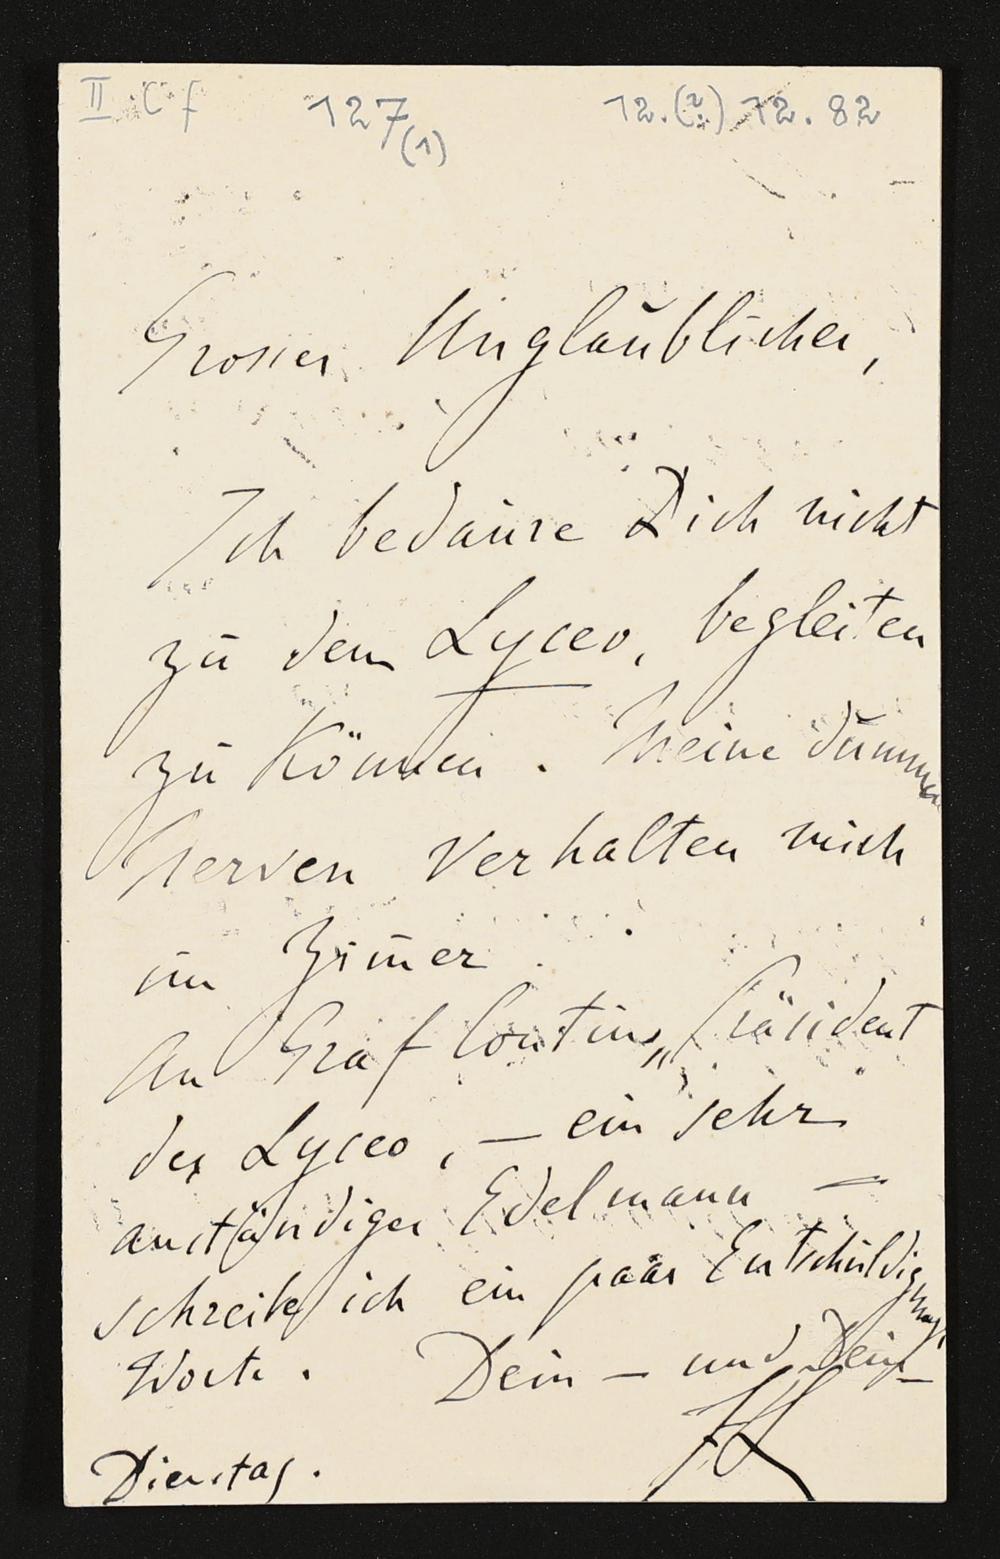 II C f 127 (1) 12.(?) 12. 82
Grosser Unglaublicher,
Ich bedaure Dich nicht
zu dem Lyceo, begleiten
zu können. Meine dummen
Nerven verhalten mich
im Zim̄er.
An Graf Contin, Präsident
des Lyceo, – ein sehr
anständiger Edelmann –
schreibe ich ein paar Entschuldigungs
Worte. Dein – und Dein
FL
Dienstag.